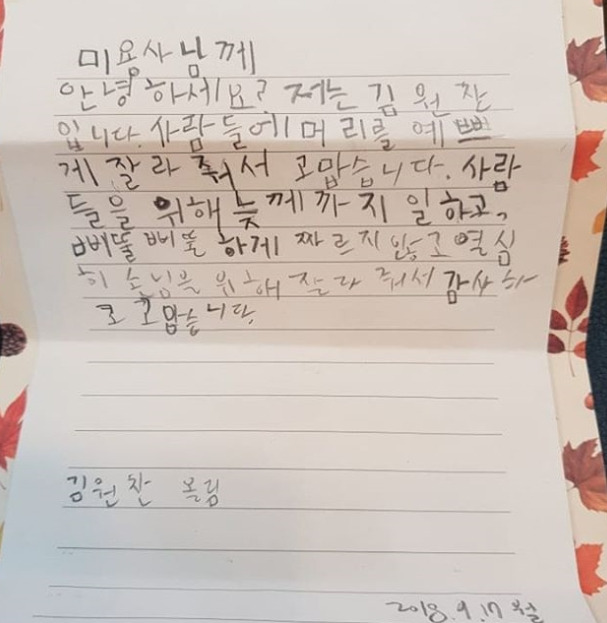 미용사님께
안녕하세요? 저는 김원찬
입니다. 사람들에 머리를 예쁘
게 잘라 줘서 고맙습니다. 사람
들을 위해 늦께까지 일하고,
삐뚤삐뚤하게 짜르지 않고 열심
히 손님을 위해 잘라 줘서 감사하
고 고맙습니다.
김원찬 올림
2018.9.17